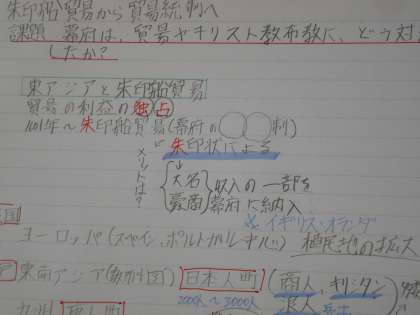 朱印船貿易から貿易統制へ
課題 幕府は、貿易やキリスト教布教に、どう対
したか?
東アジアと朱印船貿易
貿易の利益の独占
1601年～朱印船貿易(幕府の○○制)
朱印状による
メリットは?
大名 収入の一部を
豪商 幕府に納入
イギリス・オランダ
ヨーロッパ(スペイン、ポルトガル 植民地の拡大
東南アジア 日本人町 (商人、キリシタン
2000人～3000人 浪人 兵士
九州